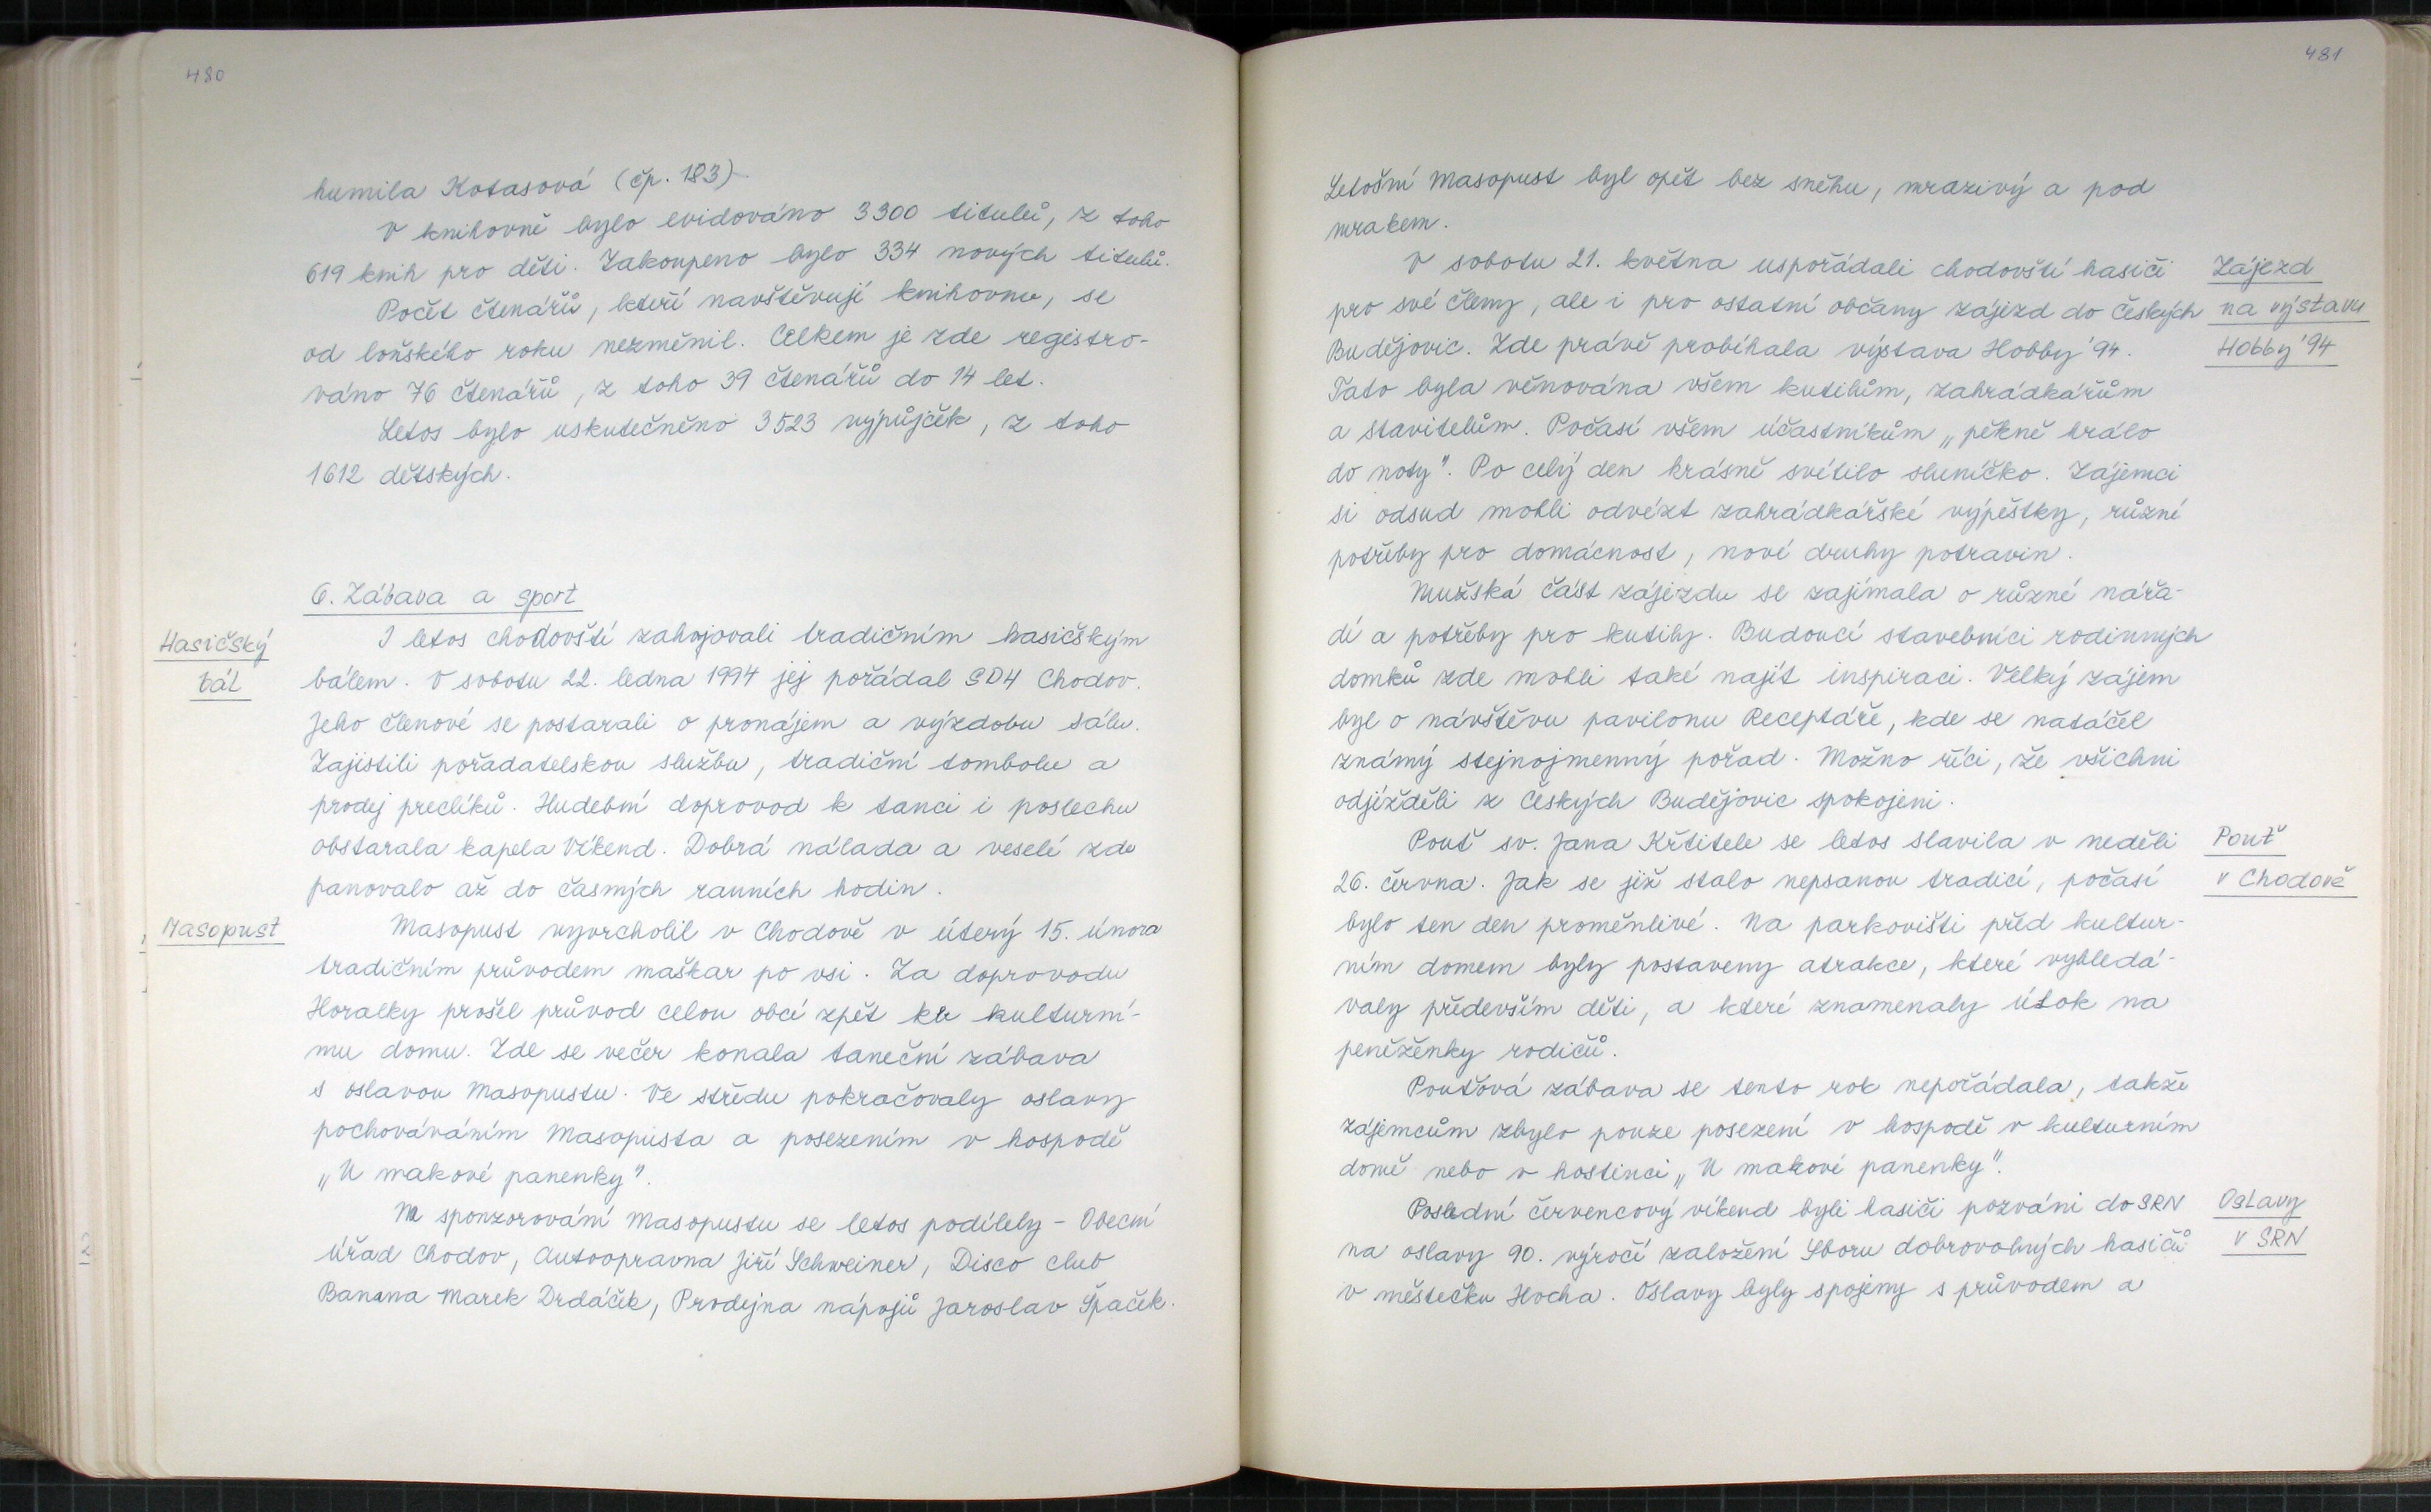 480
humila Kotasová (čp. 183)
V knihovně bylo evidováno 3300 titulů, z toho
619 knih pro děti. Zakoupeno bylo 334 nových titulů.
Počet čtenářů, kteří navštěvují knihovnu, se
od loňského roku nezměnil. Celkem je zde registro-
váno 76 čtenářů, z toho 39 čtenářů do 14 let.
Letos bylo uskutečněno 3523 výpůjček, z toho
1612 dětských.
6. Zábava a sport
Hasičský
bál
I letos chodovští zahajovali tradičním hasičským
bálem. V sobotu 22. ledna 1994 jej pořádal SDH Chodov.
Jeho členové se postarali o pronájem a výzdobu sálu.
Zajistili pořadatelskou službu, tradiční tombolu a
prodej preclíků. Hudební doprovod k tanci i poslechu
obstarala kapela Víkend. Dobrá nálada a veselí zde
panovalo až do časných ranních hodin.
Masopust
Masopust vyvrcholil v Chodově v úterý 15. února
tradičním průvodem maškar po vsi. Za doprovodu
Horalky prošel průvod celou obcí zpět ke kulturní-
mu domu. Zde se večer konala taneční zábava
s oslavou Masopustu. Ve středu pokračovaly oslavy
pochováváním Masopusta a posezením v hospodě
„U makové panenky".
Na sponzorování Masopustu se letos podílely - Obecní
úřad Chodov, Autoopravna Jiří Schweiner, Disco club
Banana Marek Drdáček, Prodejna nápojů Jaroslav Špaček.
481
Letošní Masopust byl opět bez sněhu, mrazivý a pod
mrakem.
V sobotu 21. května uspořádali chodovští hasiči
pro své členy, ale i pro ostatní občany zájezd do Českých
Budějovic. Zde právě probíhala výstava Hobby '94.
Zájezd
na výstavu
Hobby '94
Tato byla věnována všem kutilům, zahrádkářům
a stavitelům. Počasí všem účastníkům „pěkně hrálo
do noty". Po celý den krásně svítilo sluníčko. Zájemci
si odsud mohli odvézt zahrádkářské výpěstky, různé
potřeby pro domácnost, nové druhy potravin.
Mužská část zájezdu se zajímala o různé nářa-
dí a potřeby pro kutily. Budoucí stavebníci rodinných
domků zde mohli také najít inspiraci. Velký zájem
byl o návštěvu pavilonu Receptáře, kde se natáčel
známý stejnojmenný pořad. Možno říci, že všichni
odjížděli z Českých Budějovic spokojeni.
Pouť sv. Jana Křtitele se letos slavila v neděli
26. června. Jak se již stalo nepsanou tradicí, počasí
Pouť
v Chodově
bylo ten den proměnlivé. Na parkovišti před kultur-
ním domem byly postaveny atrakce, které vyhledá-
valy především děti, a které znamenaly útok na
peněženky rodičů.
Pouťová zábava se tento rok nepořádala, takže
zájemcům zbylo pouze posezení v hospodě v kulturním
domě nebo v hostinci „U makové panenky".
Poslední červencový víkend byli hasiči pozváni do SRN
na oslavy 90. výročí založení Sboru dobrovolných hasičů
v městečku Hocha. Oslavy byly spojeny s průvodem a
Oslavy
v SRN